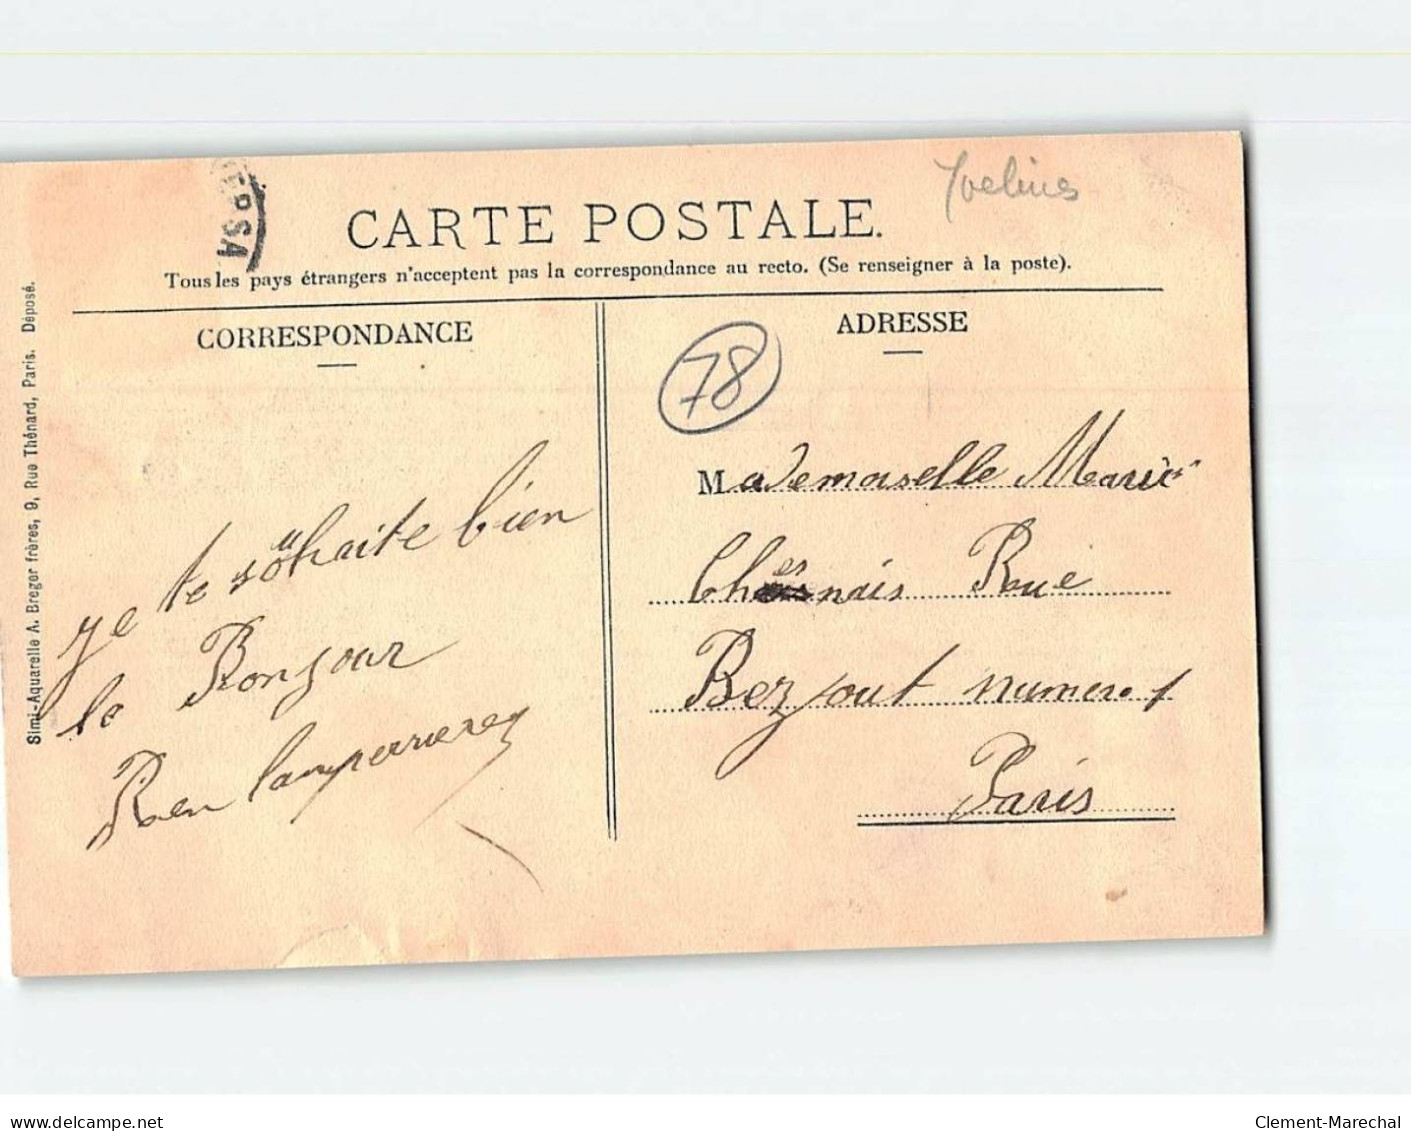 Yvelines
ERSA
CARTE POSTALE.
Tous les pays étrangers n'acceptent pas la correspondance au recto. (Se renseigner à la poste).
CORRESPONDANCE
je te souhaite bien
le Bonjour
Simi-Aquarelle A. Breger frères, 9, Rue Thénard, Paris. Déposé.
ADRESSE
78
Mademoiselle Marie
Chesnais Rue
Bezout numero 1
Paris
delcampe.net
Clement-Marechal